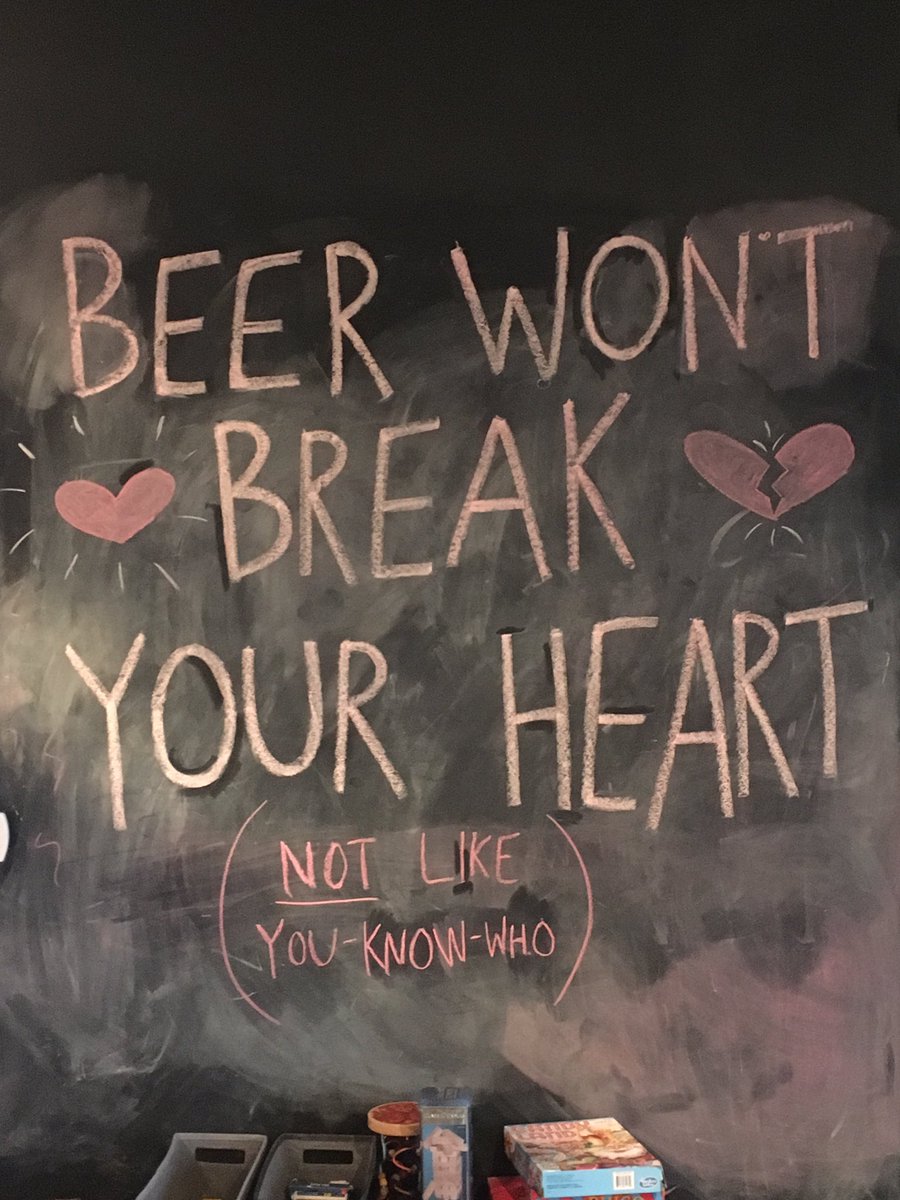 BEER WON'T
BREAK
YOUR HEART
(NOT LIKE
YOU-KNOW-WHO)